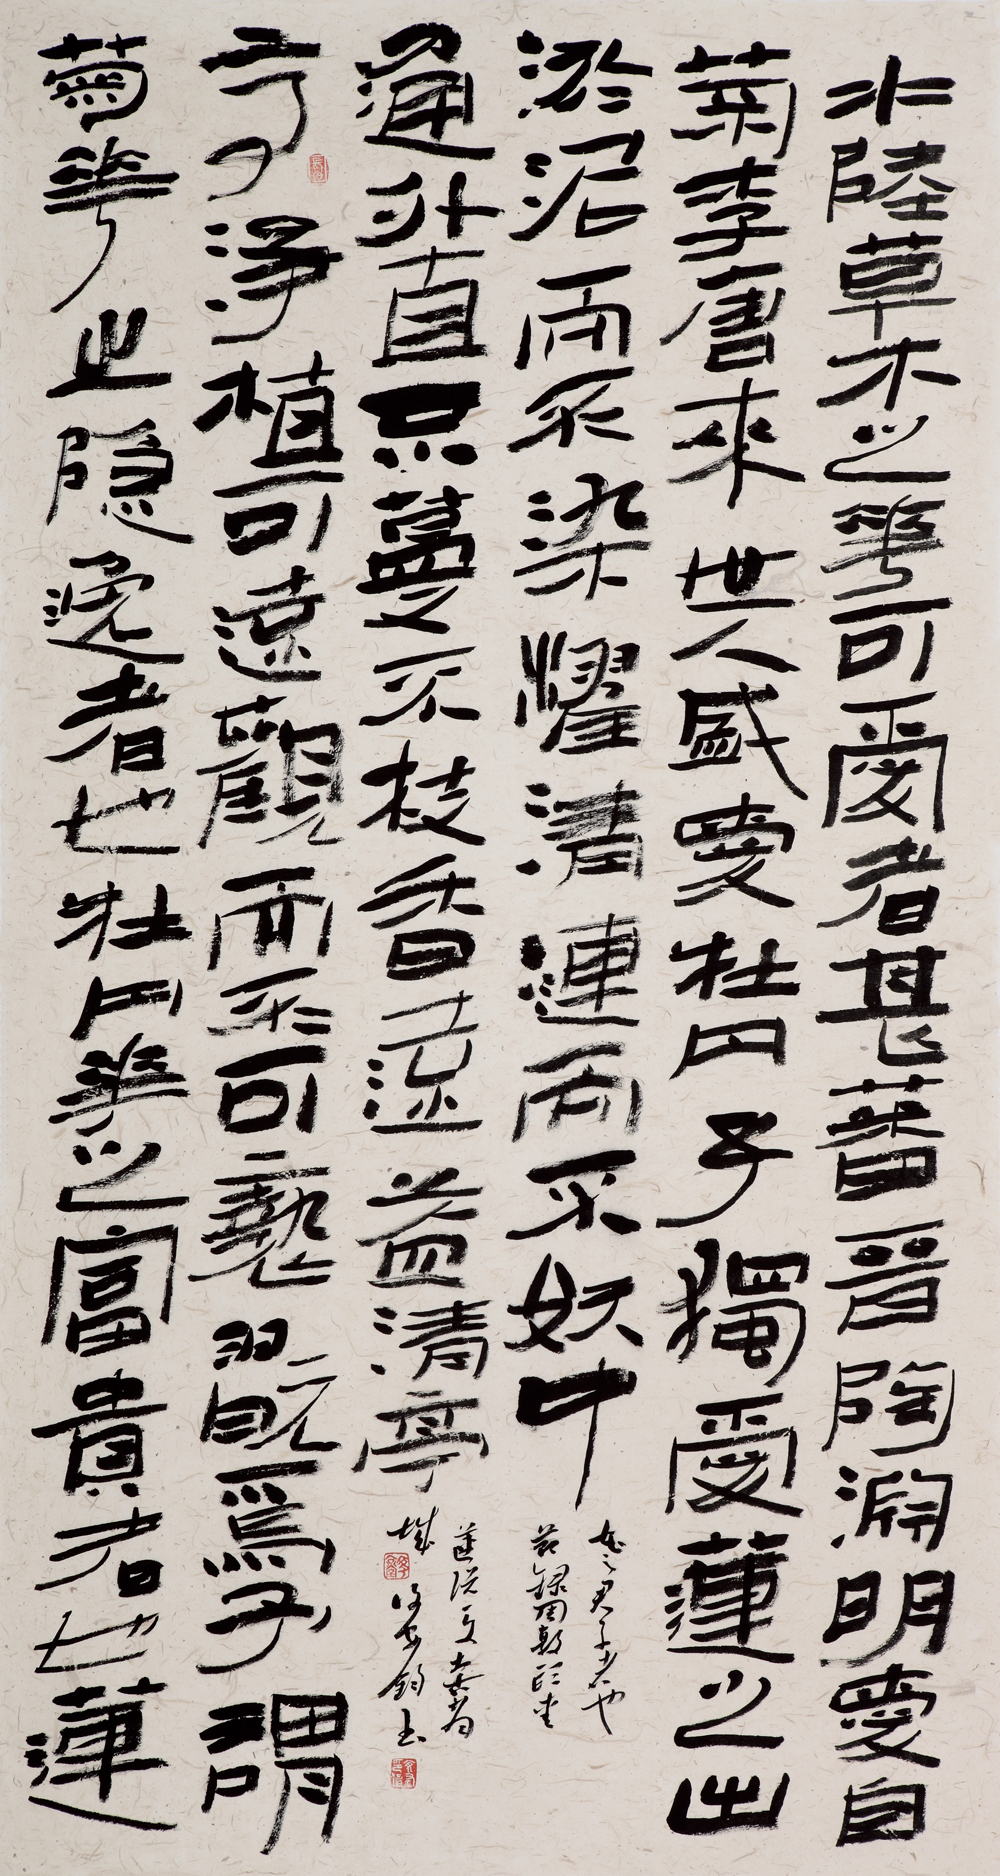 水陸草木之華可愛者甚蕃晉陶淵明愛自
菊李唐來世人盛愛牡丹予獨愛蓮之出
淤泥而不染濯清漣而不妖中
通外直不蔓不枝香遠益清亭
亭淨植可遠觀而不可褻翫焉予謂
菊華之隱逸者也牡丹華之富貴者也蓮
花之君子者也
茲錄周敦頤愛
蓮說文